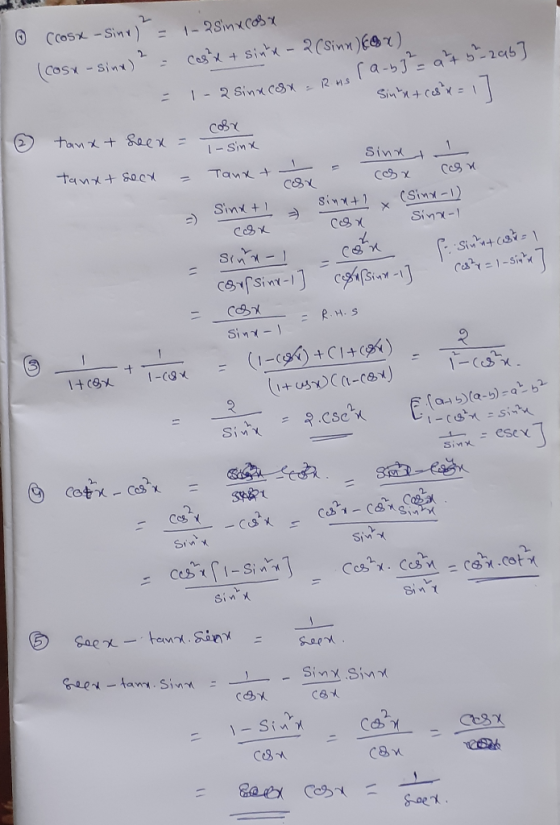 ① (cosx - sinx)² = 1 - 2sinx cosx
(cosx - sinx)² = cos²x + sin²x - 2(sinx)(cosx)
= 1 - 2sinx cosx = R.H.S [a-b]² = a² + b² - 2ab]
sin²x + cos²x = 1]
② tanx + secx = cosx / 1 - sinx
tanx + secx = Tanx + 1/cosx = sinx/cosx + 1/cosx
⇒ sinx+1/cosx ⇒ sinx+1/cosx × (sinx-1)/sinx-1
= sin²x - 1/cosx[sinx-1] = cos²x/cosx[sinx-1] [∵ sin²x + cos²x = 1
cos²x = 1 - sin²x]
= cosx/sinx-1 = R.H.S
③ 1/1+cosx + 1/1-cosx = (1-cosx)+(1+cosx)/(1+cosx)(1-cosx) = 2/1² - cos²x.
= 2/sin²x = 2.csc²x [∵ (a+b)(a-b) = a² - b²
1 - cos²x = sin²x
1/sinx = cscx]
④ cot²x - cos²x = =
= cos²x/sin²x - cos²x = cos²x - cos²x sin²x/sin²x
= cos²x[1 - sin²x]/sin²x = cos²x . cos²x/sin²x = cos²x . cot²x
⑤ secx - tanx . sinx = 1/secx.
secx - tanx . sinx = 1/cosx - sinx . sinx/cosx
= 1 - sin²x/cosx = cos²x/cosx = cosx
= cosx = 1/secx.